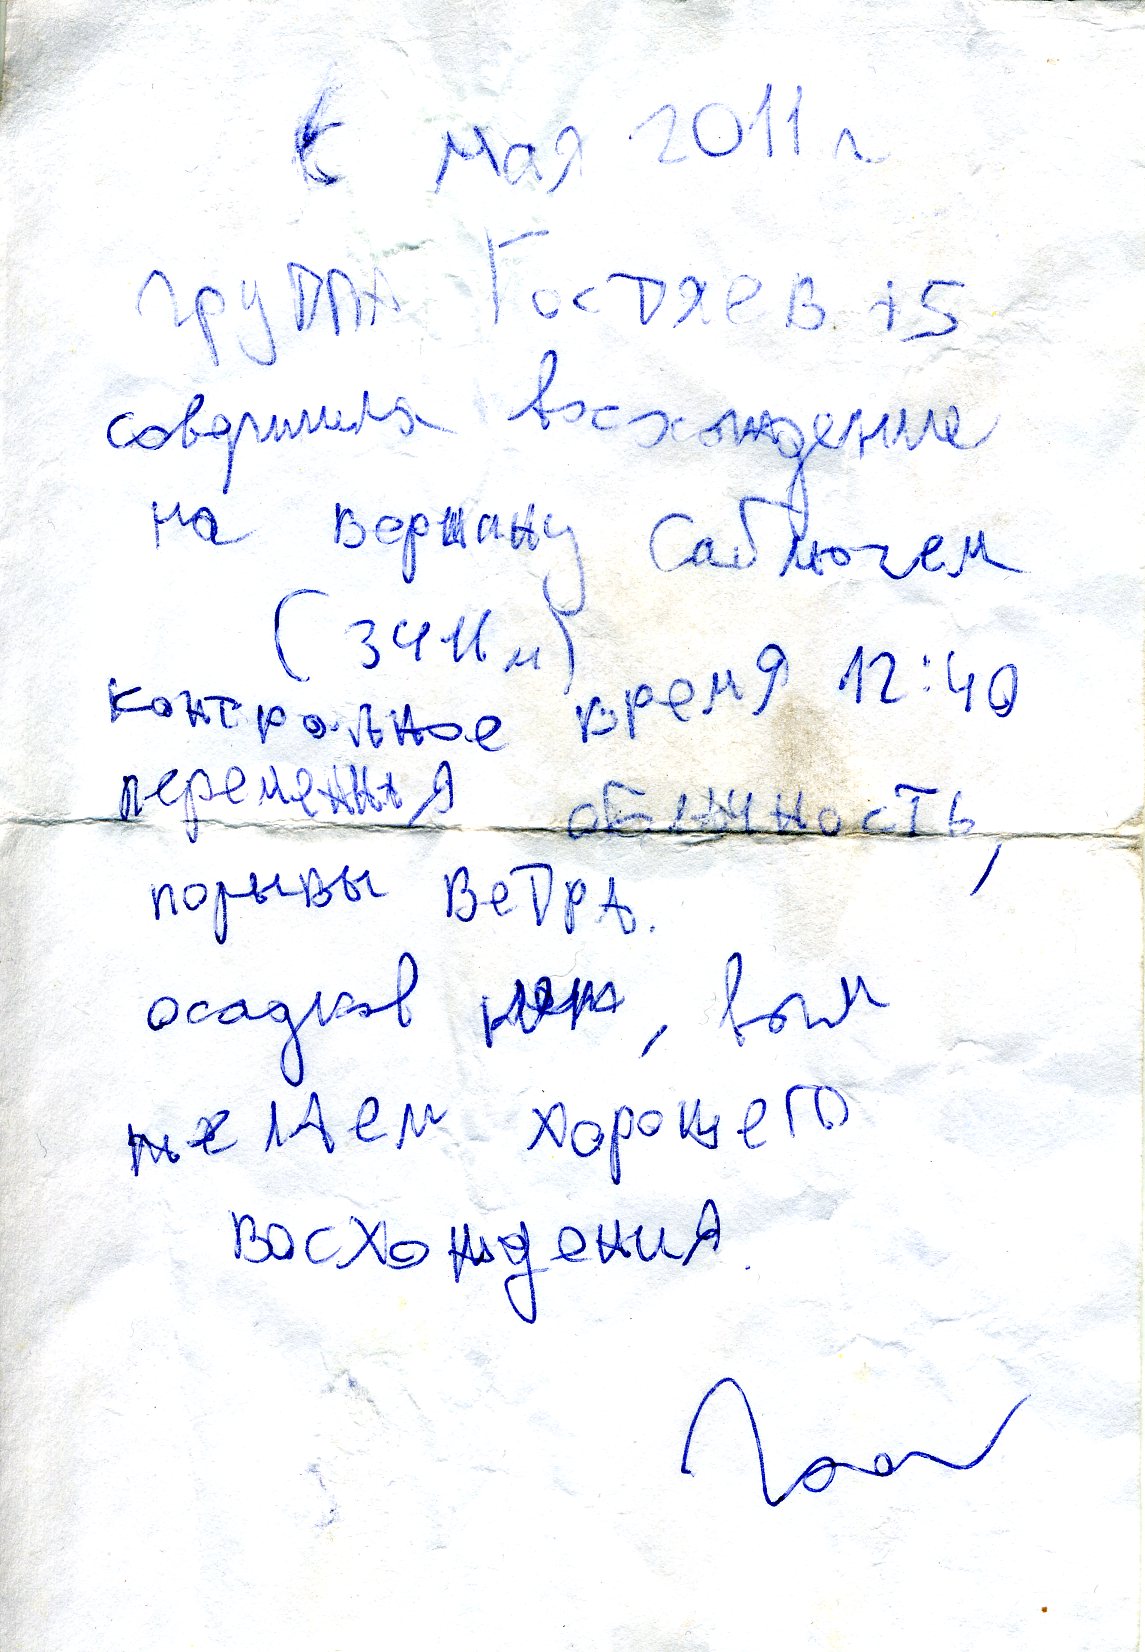 6 мая 2011 г
группа Гостяев +5
совершила восхождение
на вершину Саблючем
(3411 м)
контрольное время 12:40
переменная облачность,
порывы ветра.
осадков нет, вам
желаем хорошего
восхождения.